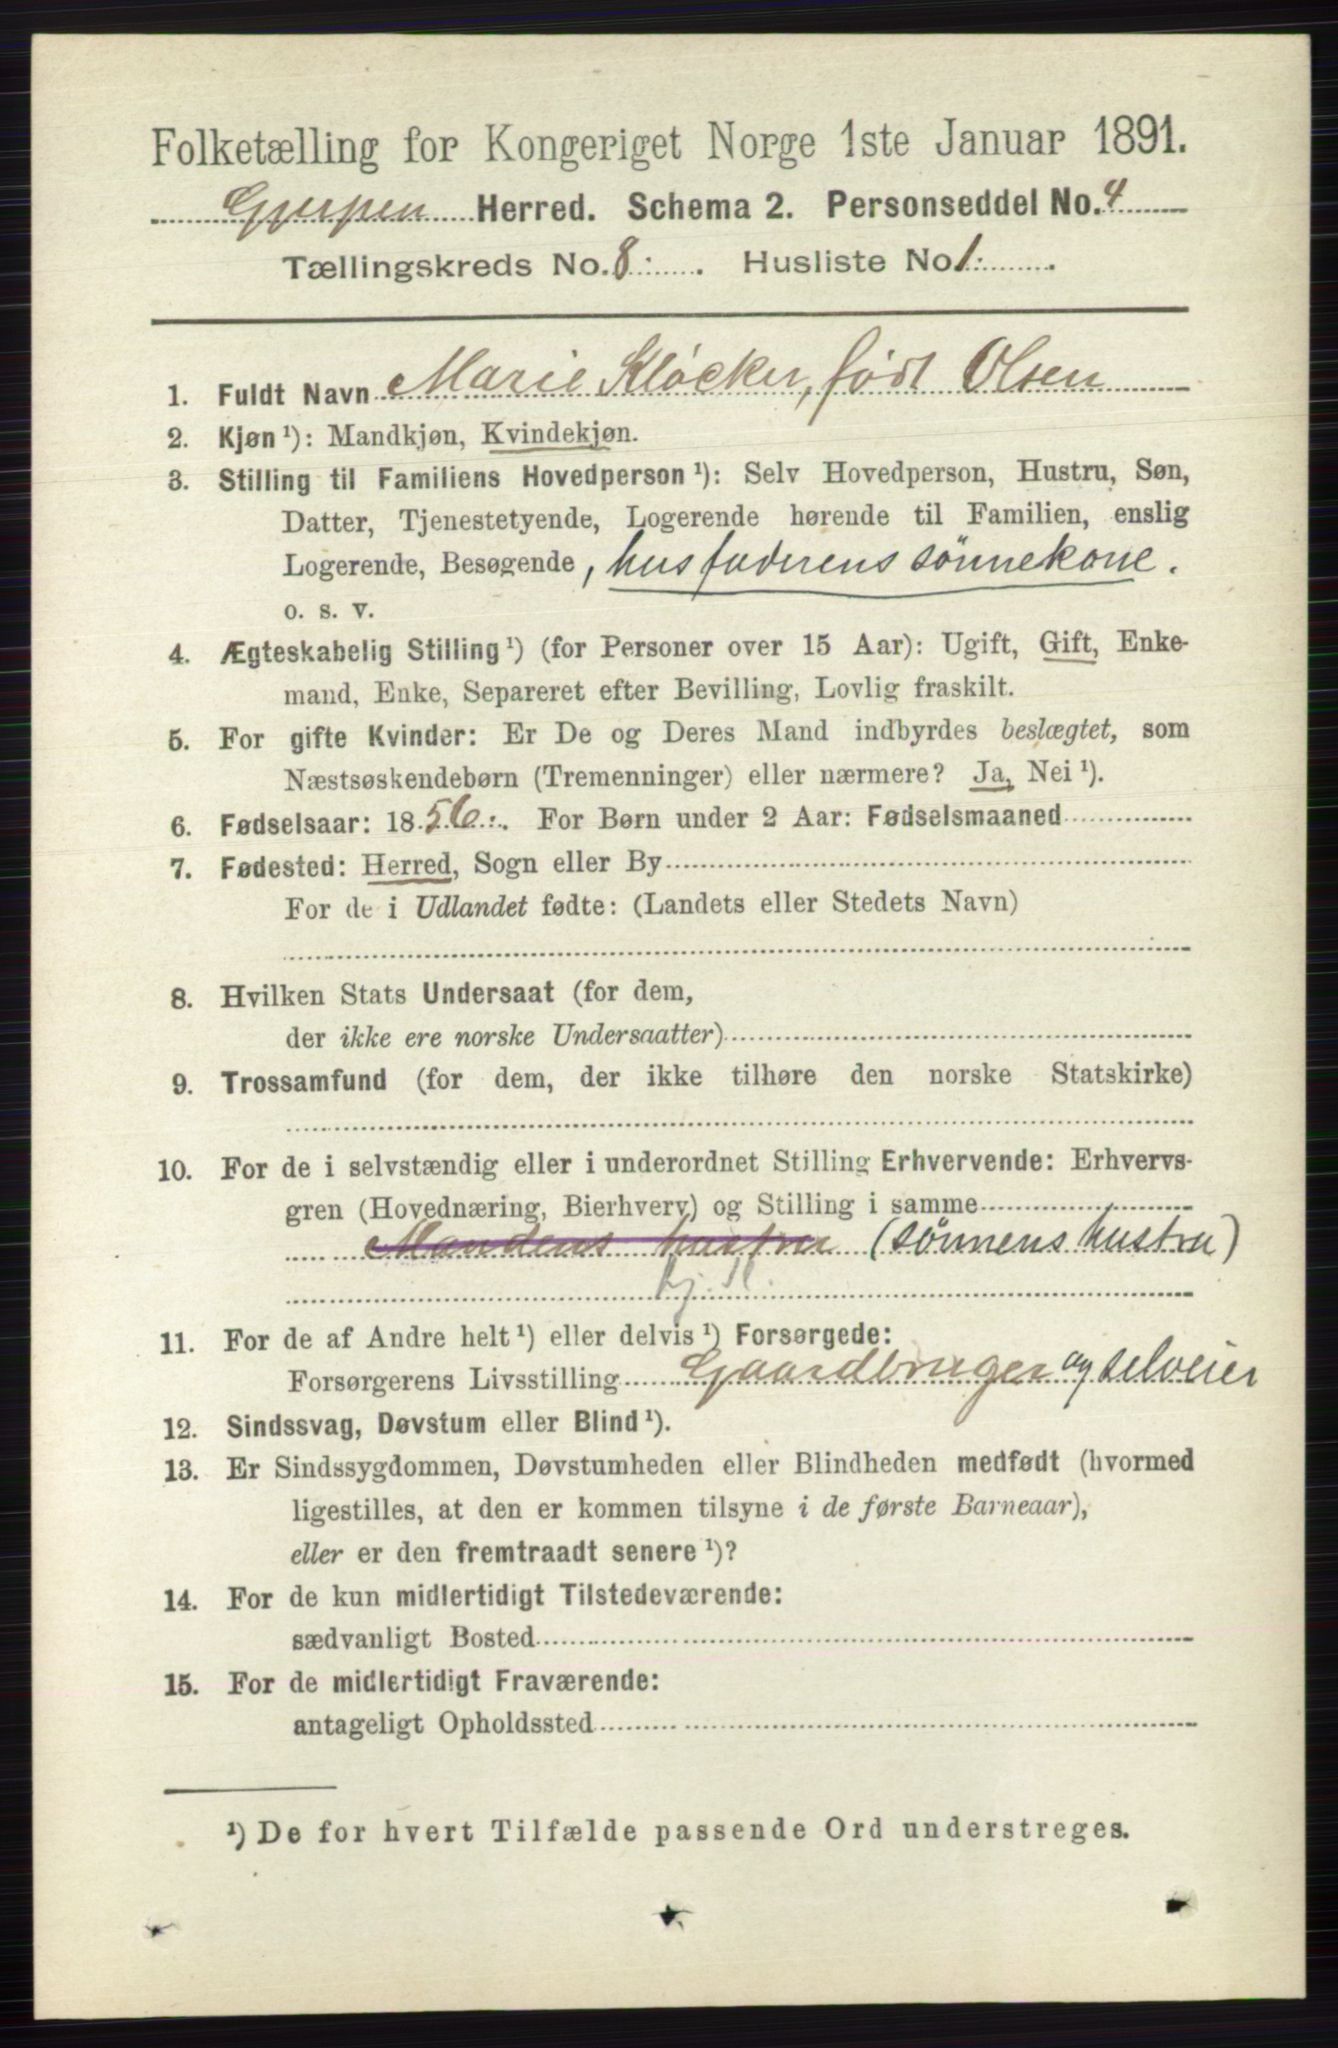 Folketælling for Kongeriget Norge 1ste Januar 1891.
Gjerpen Herred. Schema 2. Personseddel No. 4
Tællingskreds No. 8. Husliste No 1.
1. Fuldt Navn Marie Kløcker, født Olsen
2. Kjøn ¹): Mandkjøn, Kvindekjøn.
3. Stilling til Familiens Hovedperson ¹): Selv Hovedperson, Hustru, Søn,
Datter, Tjenestetyende, Logerende hørende til Familien, enslig
Logerende, Besøgende, husfaderens sønnekone.
o. s. v.
4. Ægteskabelig Stilling ¹) (for Personer over 15 Aar): Ugift, Gift, Enke-
mand, Enke, Separeret efter Bevilling, Lovlig fraskilt.
5. For gifte Kvinder: Er De og Deres Mand indbyrdes beslægtet, som
Næstsøskendebørn (Tremenninger) eller nærmere? Ja, Nei ¹).
6. Fødselsaar: 1856. For Børn under 2 Aar: Fødselsmaaned
7. Fødested: Herred, Sogn eller By
For de i Udlandet fødte: (Landets eller Stedets Navn)
8. Hvilken Stats Undersaat (for dem,
der ikke ere norske Undersaatter)
9. Trossamfund (for dem, der ikke tilhøre den norske Statskirke)
10. For de i selvstændig eller i underordnet Stilling Erhvervende: Erhvervs-
gren (Hovednæring, Bierhverv) og Stilling i samme
Mandens hustru (sønnens hustru)
11. For de af Andre helt ¹) eller delvis ¹) Forsørgede:
Forsørgerens Livsstilling Gaardbruger og selveier
12. Sindssvag, Døvstum eller Blind ¹).
13. Er Sindssygdommen, Døvstumheden eller Blindheden medfødt (hvormed
ligestilles, at den er kommen tilsyne i de første Barneaar),
eller er den fremtraadt senere ¹)?
14. For de kun midlertidigt Tilstedeværende:
sædvanligt Bosted
15. For de midlertidigt Fraværende:
antageligt Opholdssted
¹) De for hvert Tilfælde passende Ord understreges.